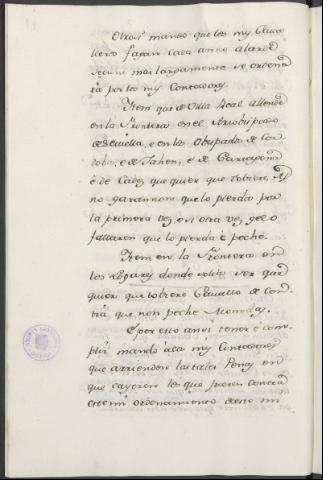 Otrosi mando que los my Cava-
lleros fagan cada anno alarde
segunt mas largamente se ordena-
rá por los my Contadores.
Item que de Villa Real allende
en la Frontera, en el Arzobispado
de Sevilla, e en los Obispados de Cor-
doba, e de Jahen, e de Cartagena
e de Cades que quier que tobiere
no garannon que lo pierda por
la primera vez, e si otra vez ge lo
fallaren que lo pierda é peche.
Item en la Frontera en
los Logares donde ser que
quier que tobiere Cavallo de
tria que non peche Moneda.
E por esto ansi tener é com-
plir mando á los my Contadores
que arrienden las tales Penas en
que cayeren los que fueren contra
este mi ordenamiento